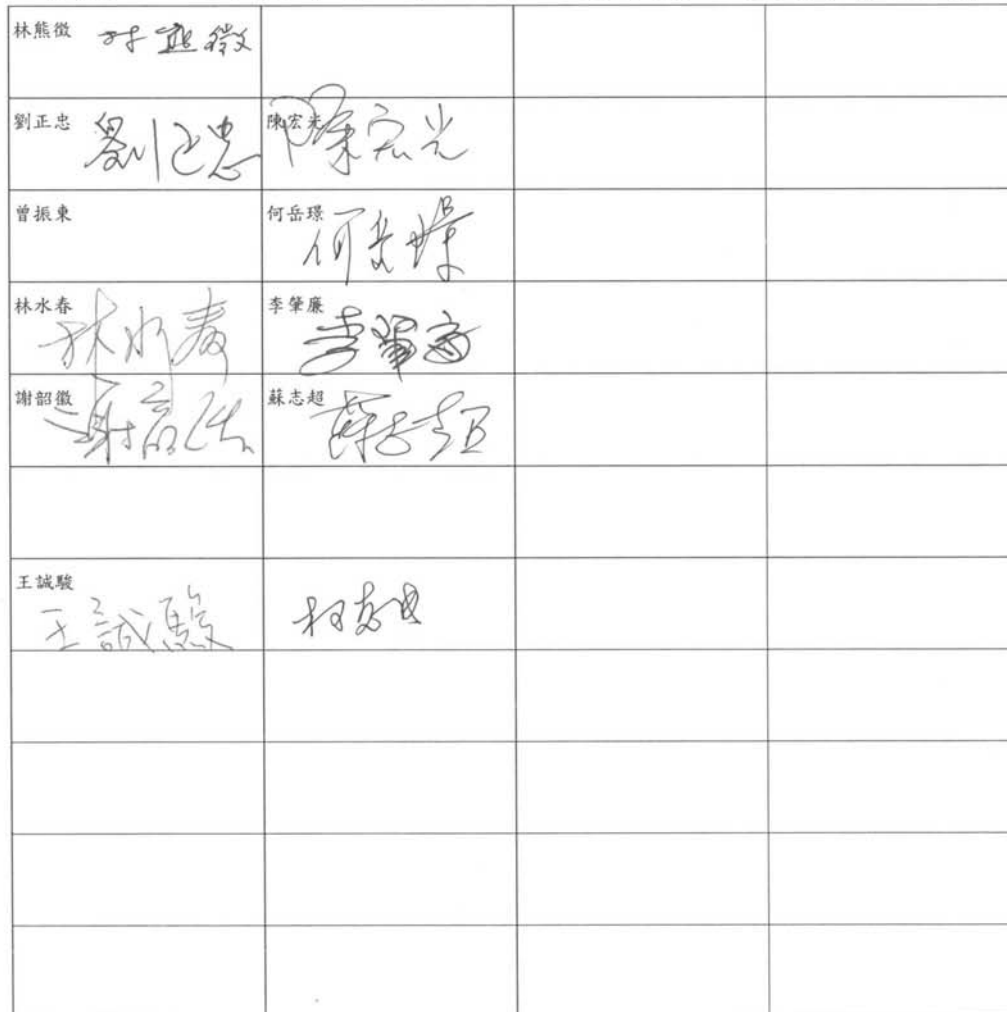 林熊徵 林熊徵
劉正忠 劉正忠 陳宏光 陳宏光
曾振東 何岳璟 何岳璟
林水春 林水春 李肇廉 李肇廉
謝韶徽 謝韶徽 蘇志超 蘇志超
王誠駿 王誠駿